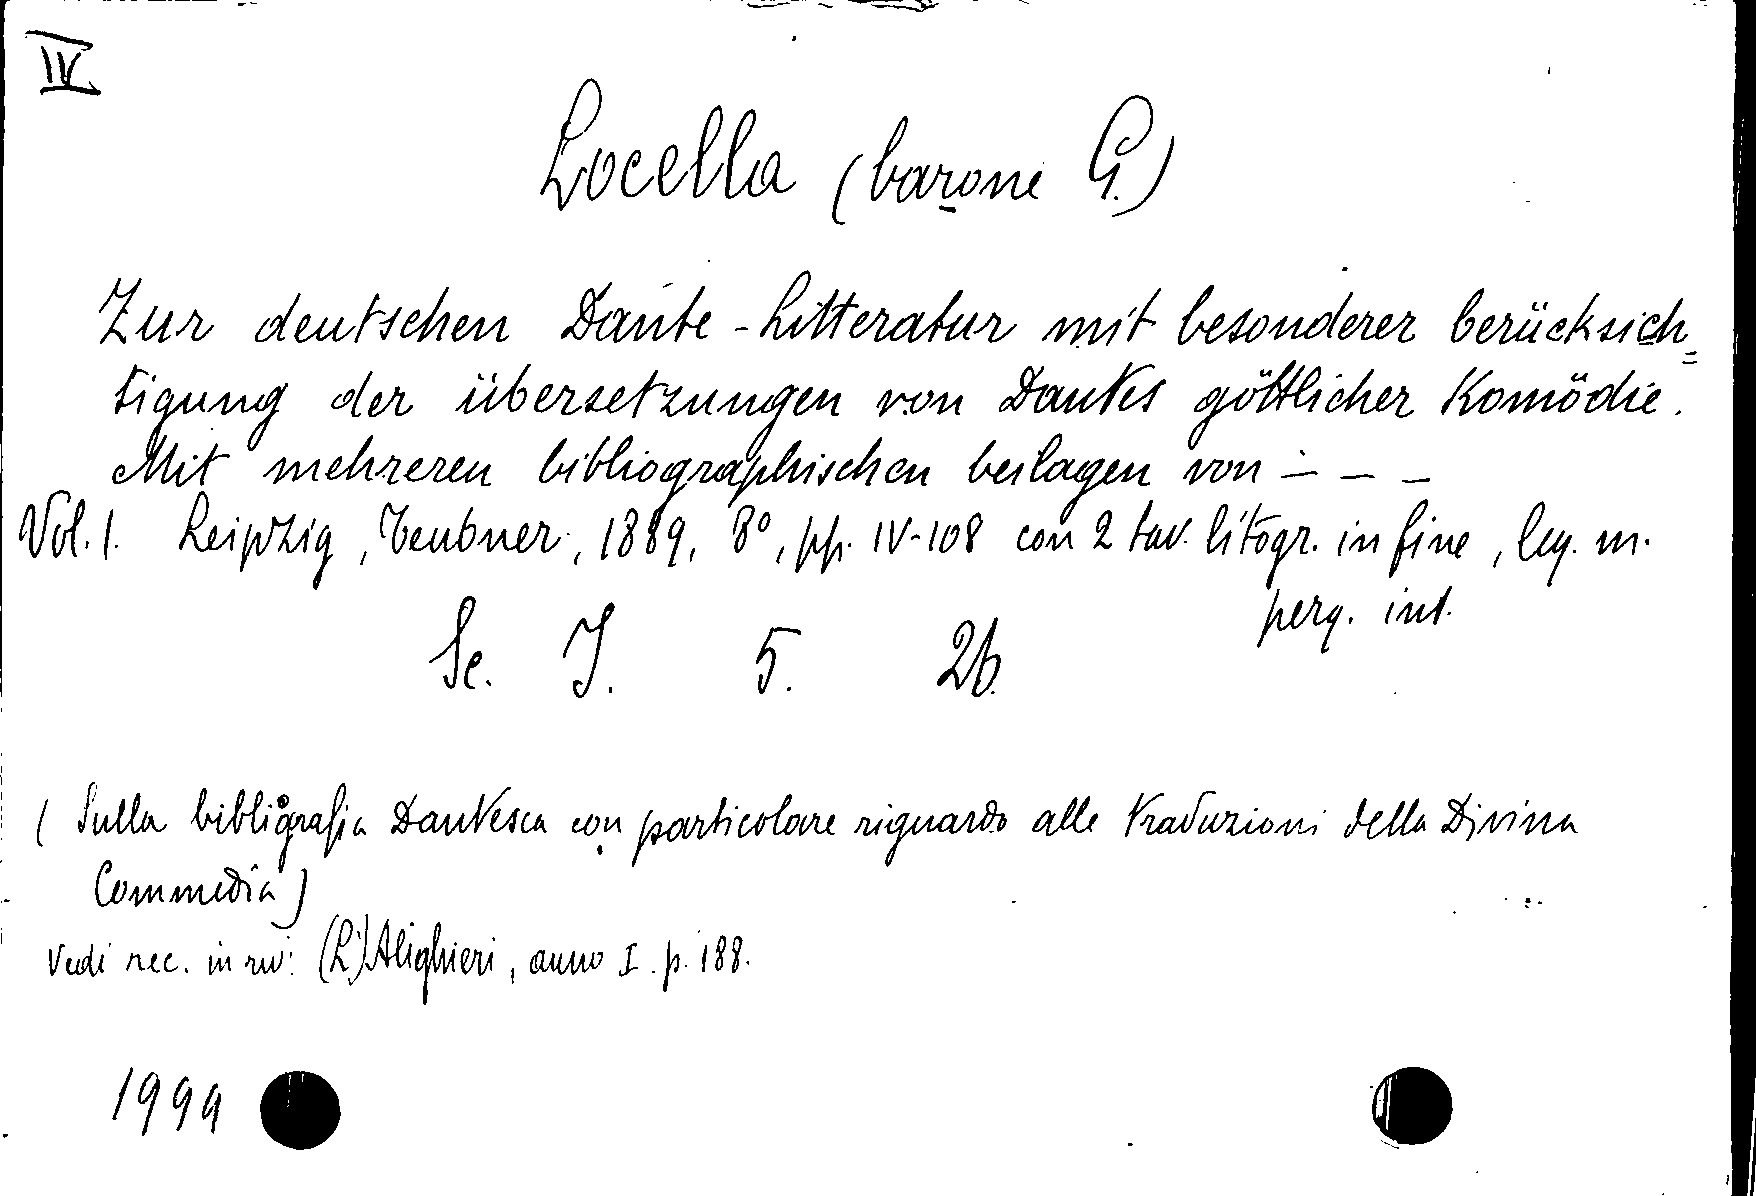 IV
Locella (barone G.)
Zur deutschen Dante-Litteratur mit besonderer berücksich=
tigung der übersetzungen von Dantes göttlicher Komödie.
Mit mehreren bibliographischen beilagen von — — —
Vol. 1. Leipzig, Teubner, 1889, 8°, pp. IV-108 con 2 tav. litogr. in fine, leg. m.
perg. int.
Se. I. 5. 26.
(Sulla bibliografia Dantesca con particolare riguardo alle traduzioni della Divina
Commedia)
Vedi rec. in riv: (L')Alighieri, anno I. p. 188.
1999